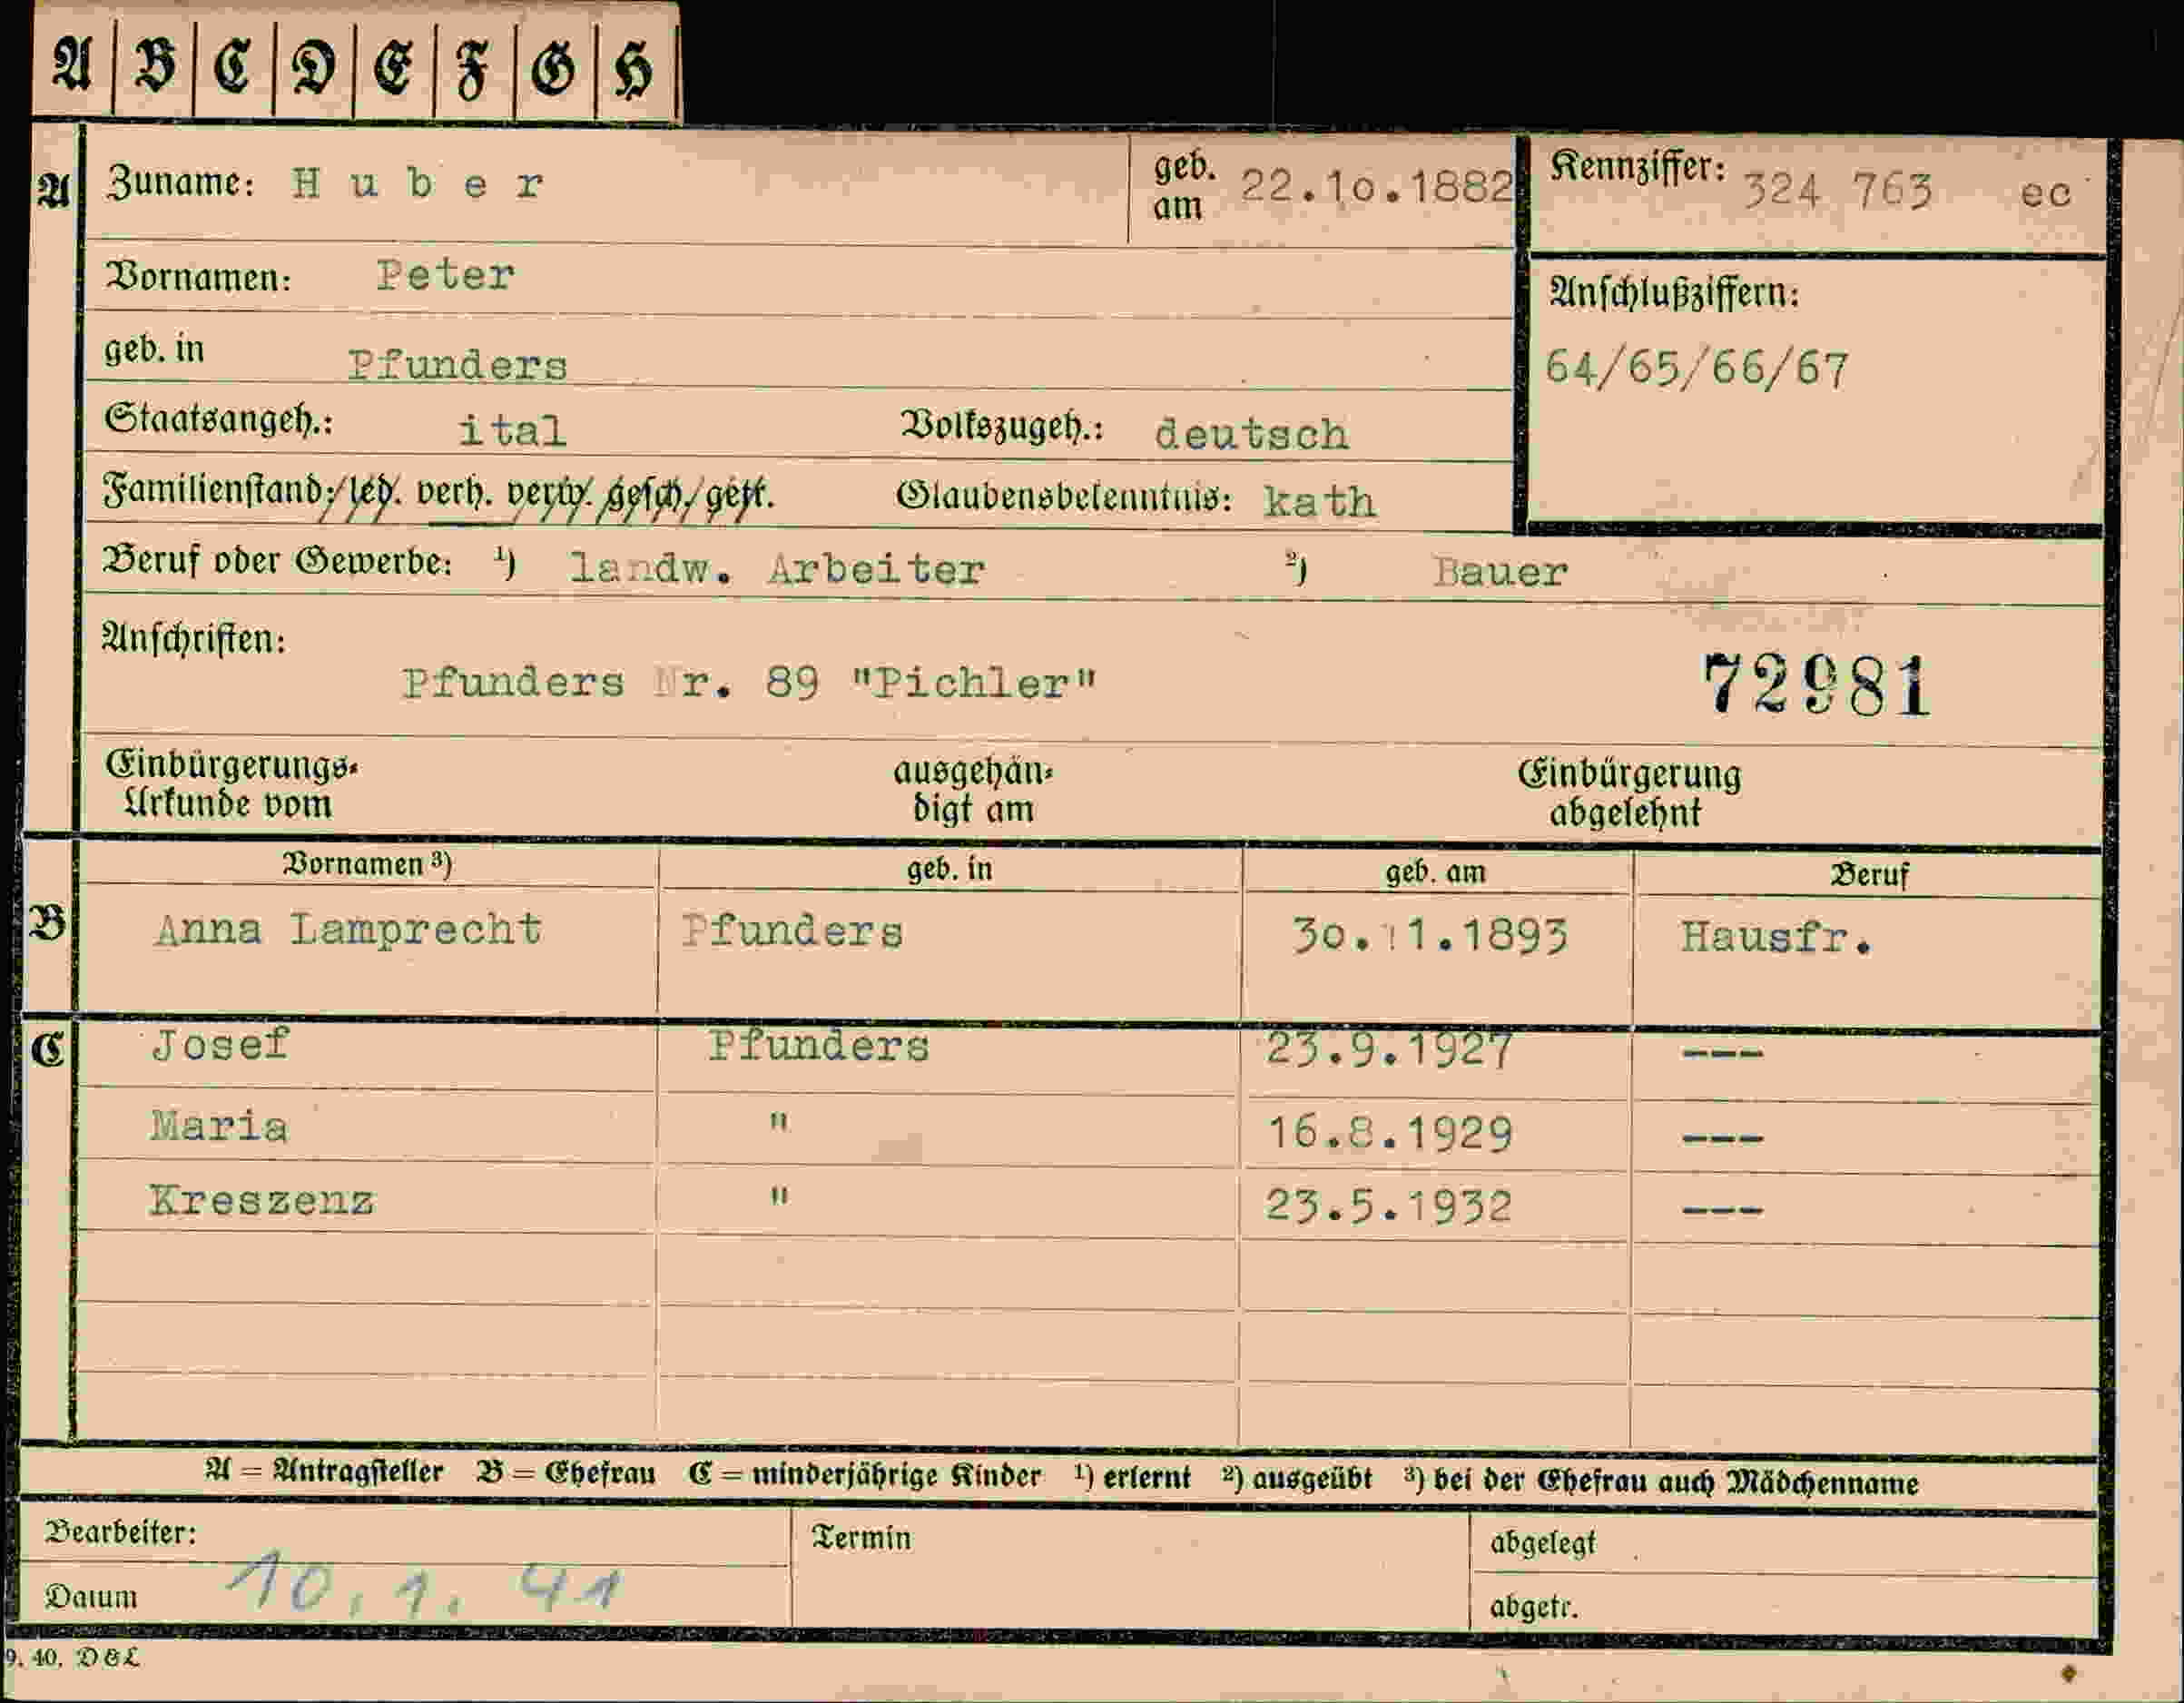 A B C D E F G H
A Zuname: Huber geb. am 22.10.1882 Kennziffer: 324 763 ec
Vornamen: Peter
Anschlußziffern:
geb. in Pfunders
64/65/66/67
Staatsangeh.: ital Volkszugeh.: deutsch
Familienstand: led. verh. verw. gesch. getr. Glaubensbekenntnis: kath
Beruf oder Gewerbe: 1) landw. Arbeiter 2) Bauer
Anschriften:
Pfunders Nr. 89 "Pichler" 72981
Einbürgerungs- ausgehän- Einbürgerung
Urkunde vom digt am abgelehnt
Vornamen 3) geb. in geb. am Beruf
B Anna Lamprecht Pfunders 30.11.1893 Hausfr.
C Josef Pfunders 23.9.1927 ---
Maria " 16.8.1929 ---
Kreszenz " 23.5.1932 ---
A = Antragsteller B = Ehefrau C = minderjährige Kinder 1) erlernt 2) ausgeübt 3) bei der Ehefrau auch Mädchenname
Bearbeiter: Termin abgelegt
Datum 10.1.41 abgetr.
9. 40. D & L